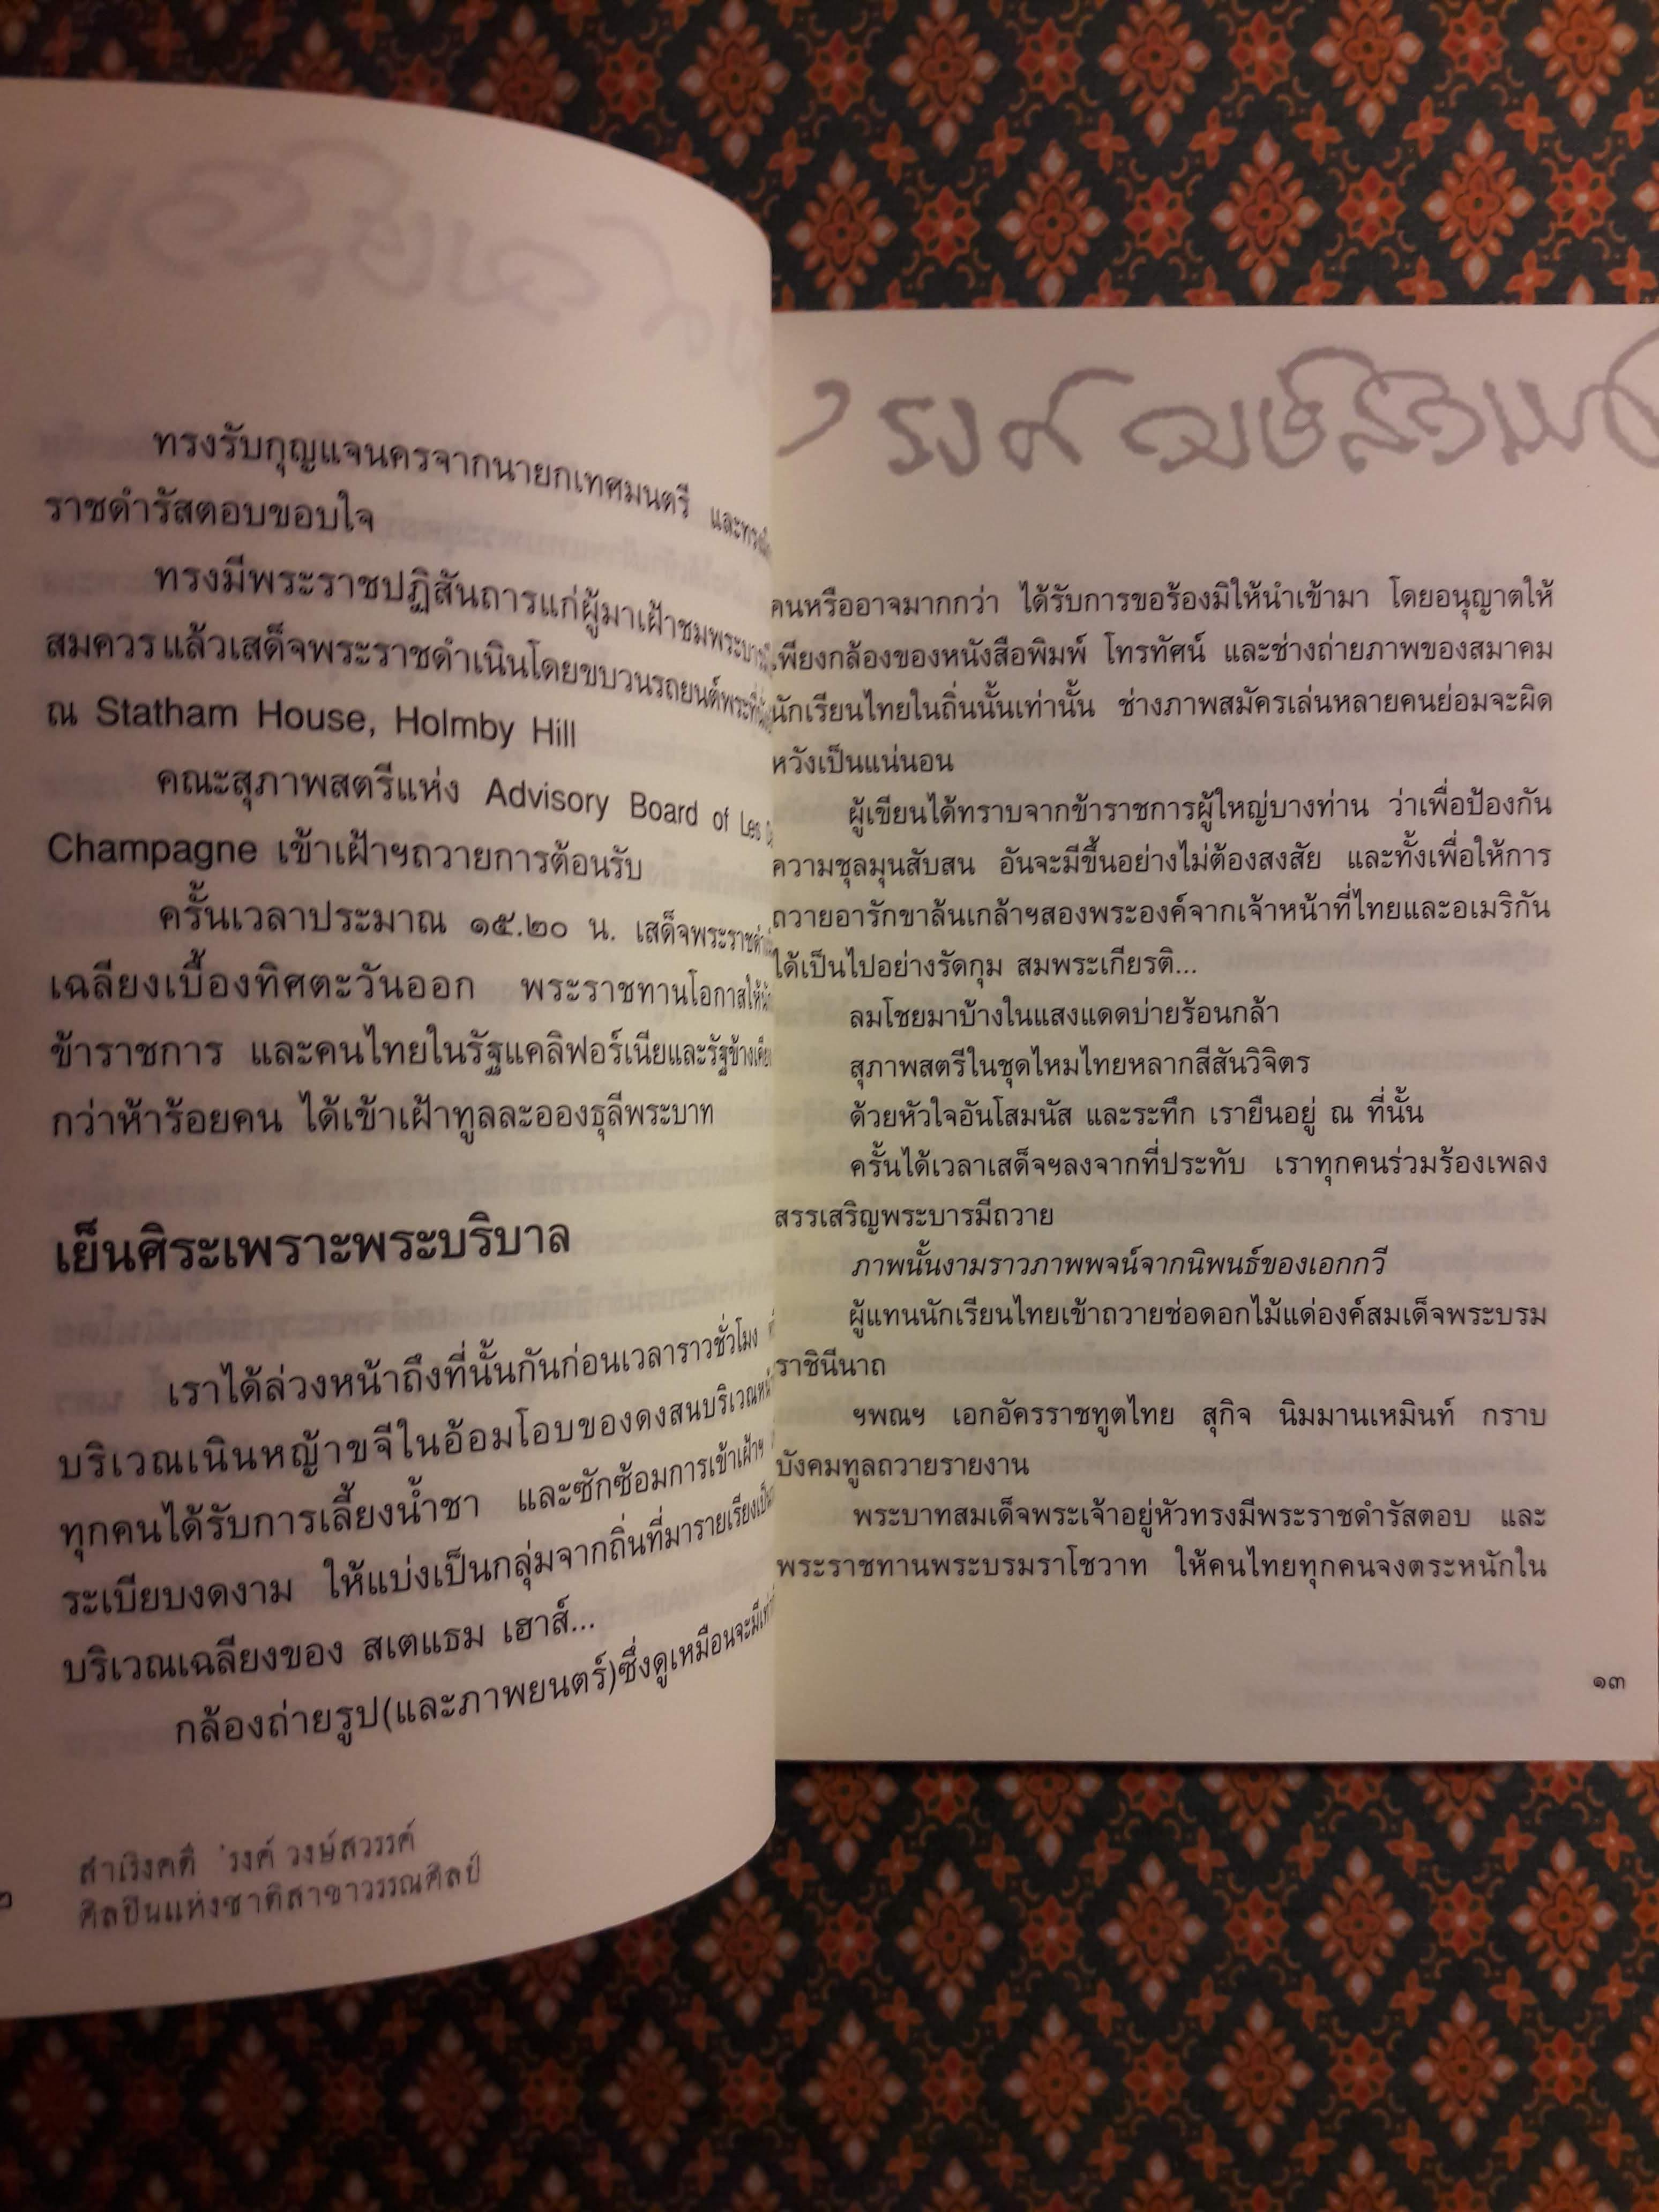 ทรงรับกุญแจนครจากนายกเทศมนตรี และทรงมี
ราชดำรัสตอบขอบใจ
ทรงมีพระราชปฏิสันถารแก่ผู้มาเฝ้าชมพระบารมี
สมควร แล้วเสด็จพระราชดำเนินโดยขบวนรถยนต์พระที่นั่ง
ณ Statham House, Holmby Hill
คณะสุภาพสตรีแห่ง Advisory Board of Les
Champagne เข้าเฝ้าฯถวายการต้อนรับ
ครั้นเวลาประมาณ ๑๕.๒๐ น. เสด็จพระราชดำ
เฉลียงเบื้องทิศตะวันออก พระราชทานโอกาสให้
ข้าราชการ และคนไทยในรัฐแคลิฟอร์เนียและรัฐข้างเคียง
กว่าห้าร้อยคน ได้เข้าเฝ้าทูลละอองธุลีพระบาท
เย็นศิระเพราะพระบริบาล
เราได้ล่วงหน้าถึงที่นั้นกันก่อนเวลาราวชั่วโมง
บริเวณเนินหญ้าขจีในอ้อมโอบของดงสนบริเวณ
ทุกคนได้รับการเลี้ยงน้ำชา และซักซ้อมการเข้าเฝ้าฯ
ระเบียบงดงาม ให้แบ่งเป็นกลุ่มจากถิ่นที่มารายเรียงเป็น
บริเวณเฉลียงของ สเตแธม เฮาส์...
กล้องถ่ายรูป(และภาพยนตร์)ซึ่งดูเหมือนจะมี
๒
สำเริงคดี ’รงค์ วงษ์สวรรค์
ศิลปินแห่งชาติสาขาวรรณศิลป์
’รงค์ วงษ์สวรรค์
คนหรืออาจมากกว่า ได้รับการขอร้องมิให้นำเข้ามา โดยอนุญาตให้
เพียงกล้องของหนังสือพิมพ์ โทรทัศน์ และช่างถ่ายภาพของสมาคม
นักเรียนไทยในถิ่นนั้นเท่านั้น ช่างภาพสมัครเล่นหลายคนย่อมจะผิด
หวังเป็นแน่นอน
ผู้เขียนได้ทราบจากข้าราชการผู้ใหญ่บางท่าน ว่าเพื่อป้องกัน
ความชุลมุนสับสน อันจะมีขึ้นอย่างไม่ต้องสงสัย และทั้งเพื่อให้การ
ถวายอารักขาล้นเกล้าฯสองพระองค์จากเจ้าหน้าที่ไทยและอเมริกัน
ได้เป็นไปอย่างรัดกุม สมพระเกียรติ...
ลมโชยมาบ้างในแสงแดดบ่ายร้อนกล้า
สุภาพสตรีในชุดไหมไทยหลากสีสันวิจิตร
ด้วยหัวใจอันโสมนัส และระทึก เรายืนอยู่ ณ ที่นั้น
ครั้นได้เวลาเสด็จฯลงจากที่ประทับ เราทุกคนร่วมร้องเพลง
สรรเสริญพระบารมีถวาย
ภาพนั้นงามราวภาพพจน์จากนิพนธ์ของเอกกวี
ผู้แทนนักเรียนไทยเข้าถวายช่อดอกไม้แด่องค์สมเด็จพระบรม
ราชินีนาถ
ฯพณฯ เอกอัครราชทูตไทย สุกิจ นิมมานเหมินท์ กราบ
บังคมทูลถวายรายงาน
พระบาทสมเด็จพระเจ้าอยู่หัวทรงมีพระราชดำรัสตอบ และ
พระราชทานพระบรมราโชวาท ให้คนไทยทุกคนจงตระหนักใน
๑๓